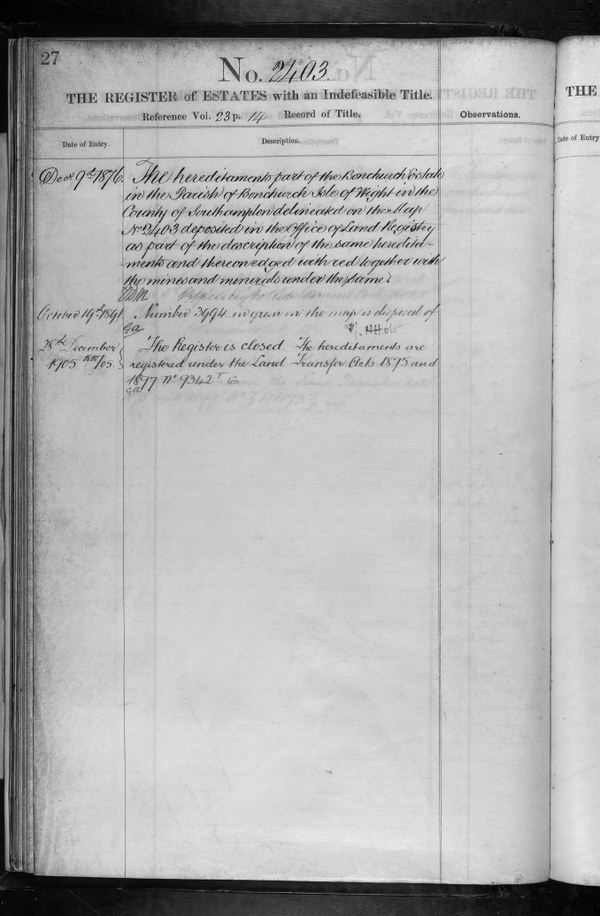 27
No. 2403.
THE REGISTER of ESTATES with an Indefeasible Title.
Reference Vol. 23 p. 14 Record of Title.
Observations.
Date of Entry.
Description.
Decr 9th 1876.
The hereditaments part of the Bonchurch Estate
in the Parish of Bonchurch Isle of Wight in the
County of Southampton delineated on the Map
No 2403 deposited in the Office of Land Registry
as part of the description of the same heredita-
ments and thereon edged with red together with
the mines and minerals under the same.
October 19th 1891.
Number 3994 in green on the map is disposed of
28th December
1905
The Register is closed The hereditaments are
registered under the Land Transfer Acts 1875 and
1897 No 9342
THE
Date of Entry